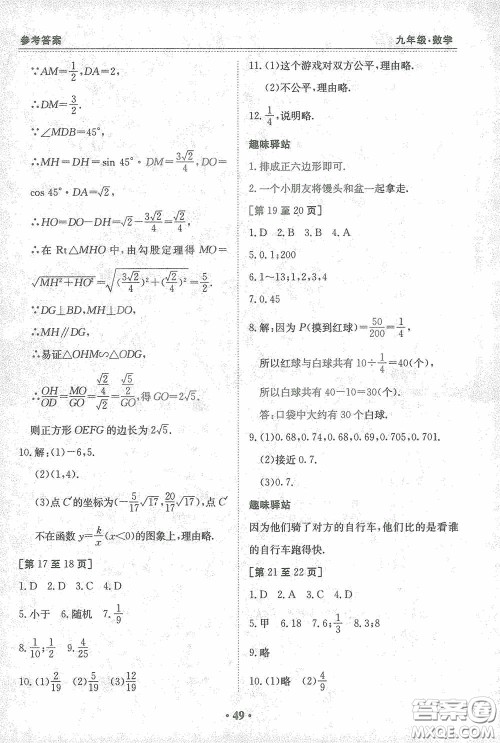 参考答案
九年级·数学
∵AM=1/2,DA=2,
∴DM=3/2.
∵∠MDB=45°,
∴MH=DH=sin 45°·DM=3√2/4,DO=
cos 45°·DA=√2,
∴HO=DO-DH=√2-3√2/4=√2/4,
∴在 Rt△MHO 中,由勾股定理得 MO=
√(MH²+HO²)=√((3√2/4)²+(√2/4)²)=√5/2.
∵DG⊥BD,MH⊥BD,
∴MH∥DG,
∴易证△OHM∽△ODG,
∴OH/OD=MO/GO=(√2/4)/√2=(√5/2)/GO,得 GO=2√5.
则正方形 OEFG 的边长为 2√5.
10.解:(1)-6,5.
(2)(1,4).
(3)点 C′的坐标为(-5/17√17,20/17√17),点 C′
不在函数 y=k/x(x<0)的图象上,理由略.
[第 17 至 18 页]
1.D 2.D 3.C 4.D
5.小于 6.随机 7.1/9
8.1/10 9.4/25
10.(1)2/19 (2)5/19 (3)4/19
11.(1)这个游戏对双方公平,理由略.
(2)不公平,理由略.
12.1/4,说明略.
趣味驿站
1.排成正六边形即可.
2.一个小朋友将馒头和盆一起拿走.
[第 19 至 20 页]
1.D 2.B 3.A 4.A
5.0.1;200
6.1~13;1,2,3,4
7.0.45
8.解:因为 P(摸到红球)=50/200=1/4,
所以红球与白球共有 10÷1/4=40(个),
所以白球共有 40-10=30(个).
答:口袋中大约有 30 个白球.
9.(1)0.68,0.74,0.68,0.69,0.705,0.701
(2)接近 0.7.
(3)0.7.
趣味驿站
因为他们骑了对方的自行车,他们比的是看谁
的自行车跑得快.
[第 21 至 22 页]
1.D 2.B 3.B 4.C
5.甲 6.8 7.1/3 8.2/3
9.略
10.(1)略 (2)4/9
·49·